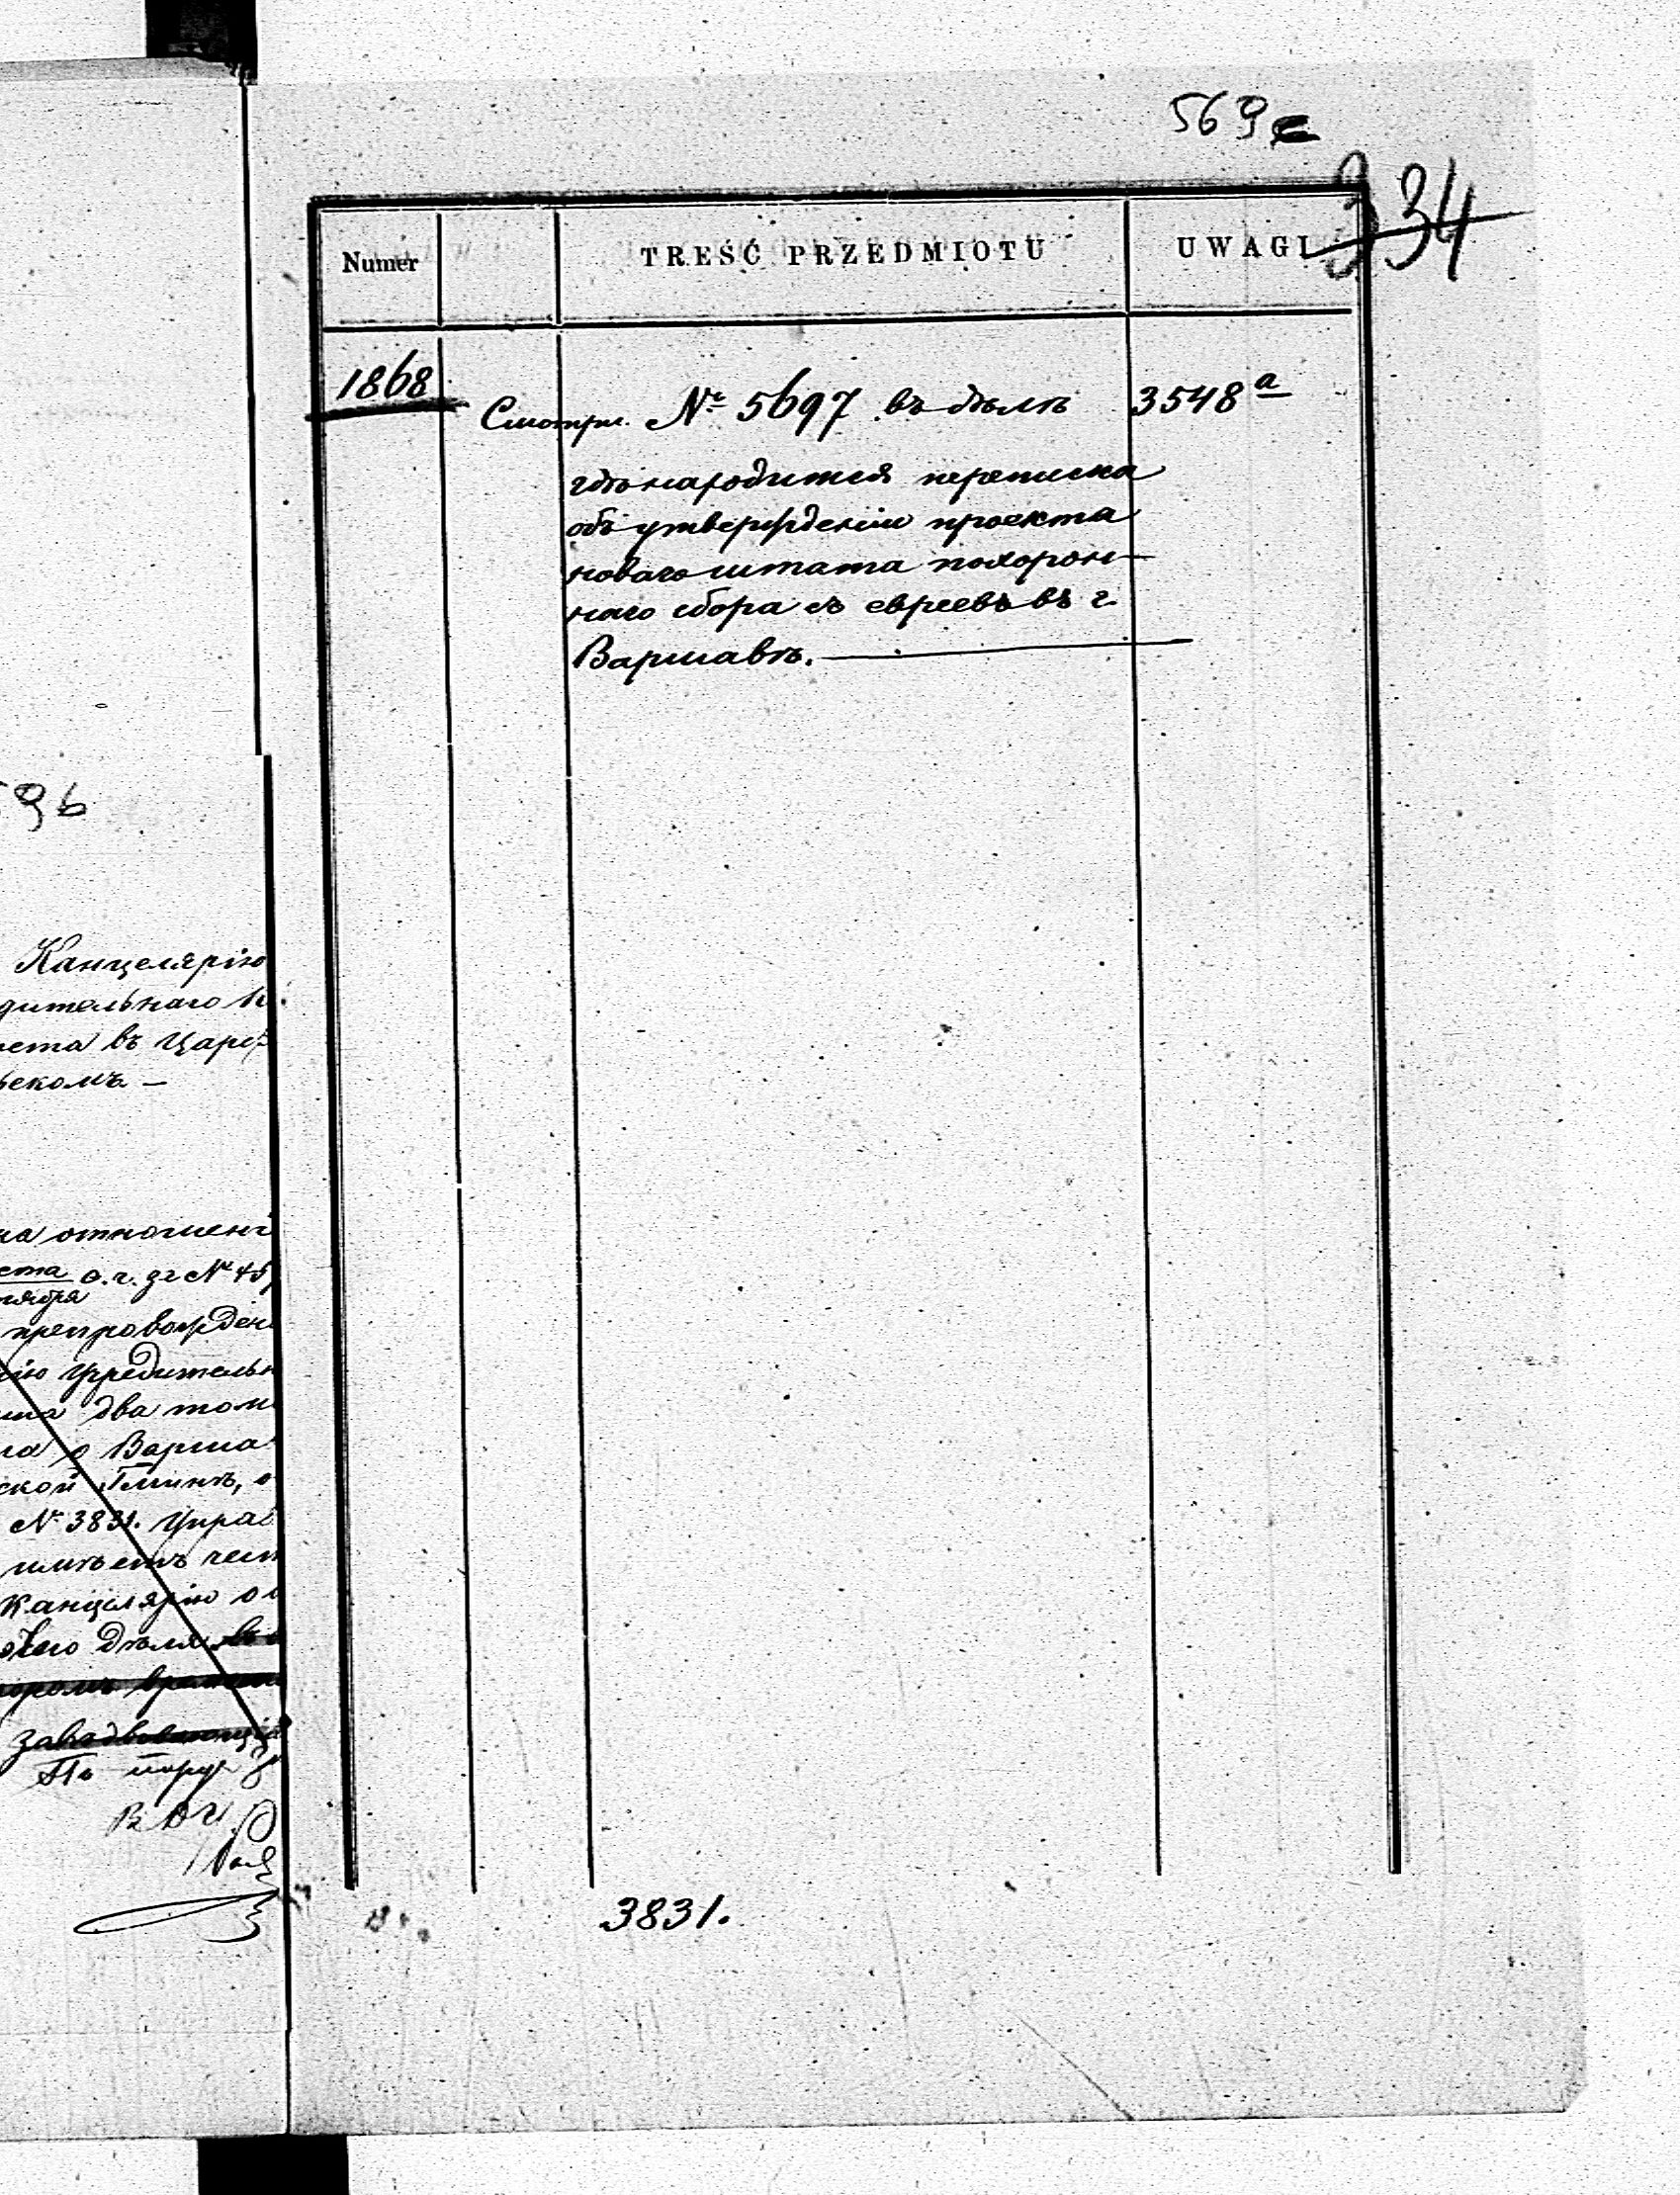 569
334
Numer TREŚĆ PRZEDMIOTU UWAGI
1868
Смотри № 5697 въ дѣлѣ 3548 а
гдѣ находится переписка
объ утвержденіи проекта
новаго штата похорон-
наго сбора съ евреевъ въ г.
Варшавѣ.
3831.
96
Канцелярію
дительнаго К
въ Царс
скомъ —
на отношені
ста
тября о. г. за № 45
препровожден
ію Учредительн
два том
о Варша
ской Гминѣ, о
№ 3831. Упра
имѣетъ чест
Канцелярію о
дѣла
По